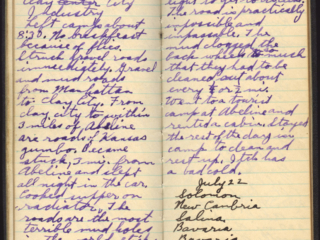 Clay Center City
industry
Left camp about
8:20. No breakfast
because of flies.
Struck gravel roads
immediately. Gravel
and mud roads
from Manhattan
to Clay City. From
Clay City to within
3 miles of Abilene
are roads. Kansas
gumbo. Became
stuck, 3 mi. from
Abilene and slept
all night in the car.
Cooked supper on
radiator. The
roads are the most
terrible mud holes
The road is practically
impossible and
impassable. The
mud clogged the
wheels so much
that they had to be
cleaned out about
every ½ or 2 mi.
Went to a tourist
camp at Abilene and
rented a cabin. Stayed
the rest of the day in
camp to clean and
rest up. Ptla has
a bad cold.
July 22
Solomon
New Cambria
Salina
Bavaria